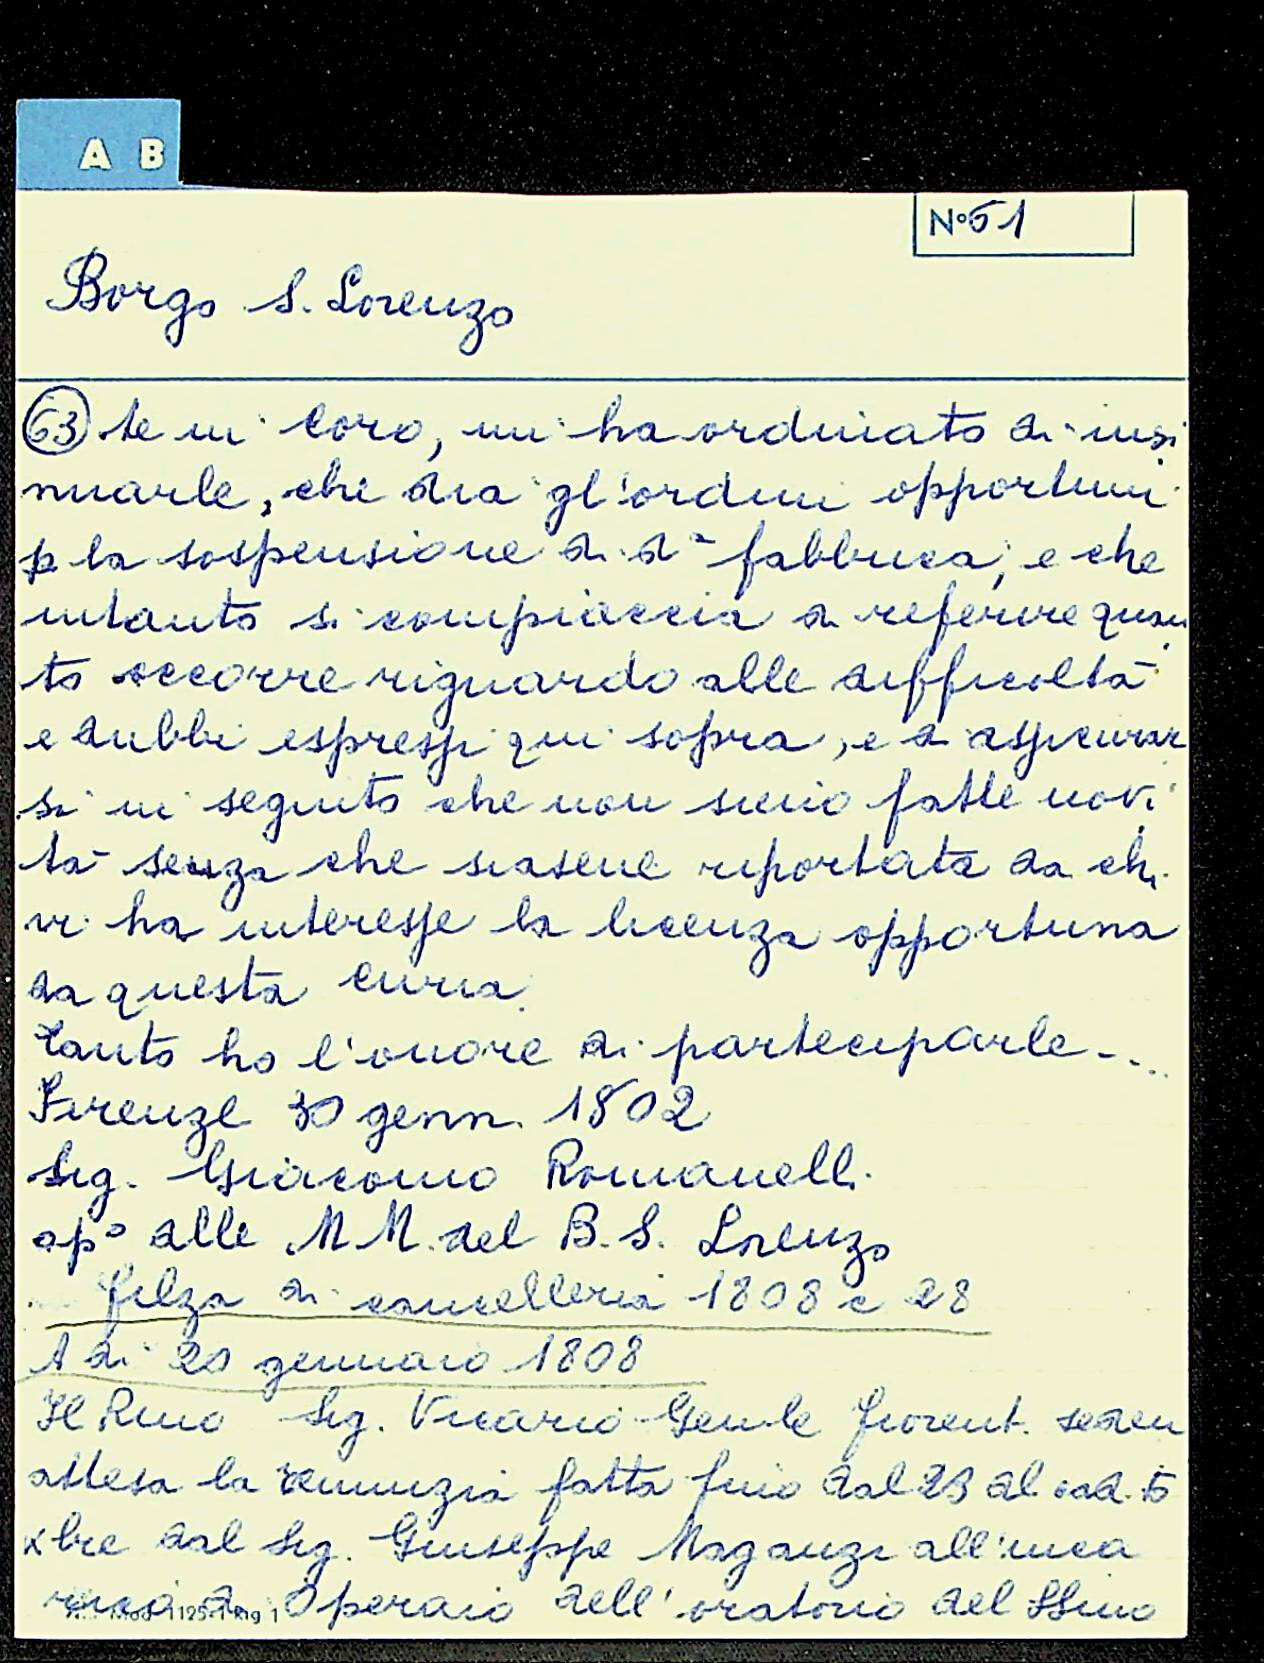 A B
N° 61
Borgo S. Lorenzo
63 te in coro, mi ha ordinato di insi
nuarle, che dia gl'ordini opportuni
p la sospensione di da fabbrica, e che
intanto si compiaccia di referire quan
to occorre riguardo alle difficoltà
e dubbi espressi qui sopra, e di assicurar
si in seguito che non sieno fatte novi
tà senza che siasene riportata da chi
vi ha interesse la licenza opportuna
da questa curia
Tanto ho l'onore di parteciparle - ...
Firenze 30 genn. 1802
Sig. Giacomo Romanelli
opo alle MM. del B. S. Lorenzo
filza di cancelleria 1808 c 28
A di 20 gennaio 1808
Il Rmo Sig. Vicario Gen.le fiorent. seden
attesa la renunzia fatta fino dal 23 al cad. 5
xbre dal Sig. Giuseppe Maganzi all'inca
rico di Operaio dell'oratorio del SSmo